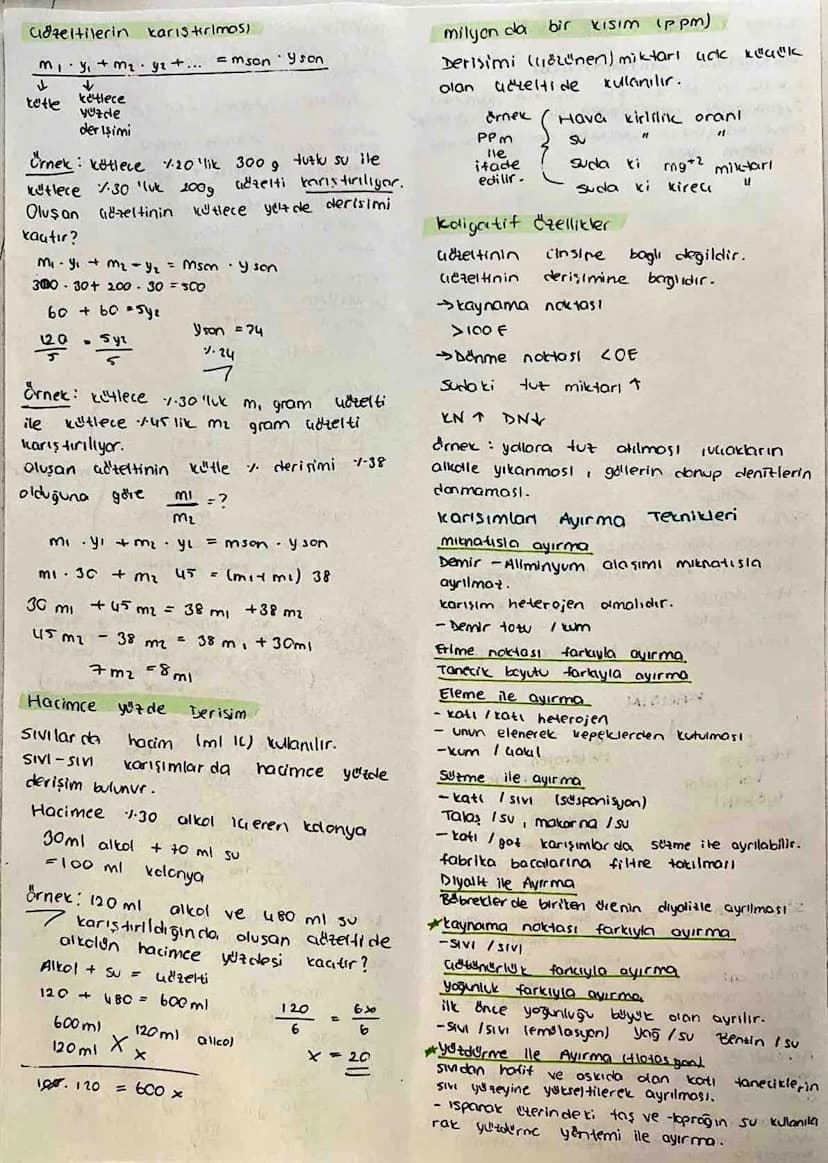 Çözeltilerin karıştırılması
m1 · y1 + m2 · y2 + ... = mson · yson
kütle kütlece
yüzde
derişimi
Örnek: kütlece %20'lik 300 g tuzlu su ile
kütlece %30'luk 200g çözelti karıştırılıyor.
Oluşan çözeltinin kütlece yüzde derişimi
kaçtır?
m1 · y1 + m2 - y2 = mson · yson
300 · 30 + 200 · 30 = 500
60 + 60 = 5y2
120/5 = 5y2/5
yson = 24
%24
Örnek: kütlece %30'luk m1 gram çözelti
ile kütlece %45 lik m2 gram çözelti
karıştırılıyor.
Oluşan çözeltinin kütle % derişimi %38
olduğuna göre m1/m2 = ?
m1 · y1 + m2 · y2 = mson · yson
m1 · 30 + m2 45 = (m1+m2) 38
30 m1 + 45 m2 = 38 m1 + 38 m2
45 m2 - 38 m2 = 38 m1 + 30m1
7m2 = 8m1
Hacimce yüzde Derişim
Sıvılarda hacim (ml / L) kullanılır.
Sıvı-sıvı karışımlarda hacimce yüzde
derişim bulunur.
Hacimce %30 alkol içeren kolonya
30ml alkol + 70 ml su
= 100 ml kolonya
Örnek: 120 ml alkol ve 480 ml su
karıştırıldığında, oluşan çözeltide
alkolün hacimce yüzdesi kaçtır?
Alkol + su = çözelti
120 + 480 = 600ml
600ml 120ml alkol
120ml x
100 · 120 = 600 x
120/6 = 6x/6
x = 20
milyonda bir kısım (ppm)
Derişimi (çözünen) miktarı çok küçük
olan çözeltide kullanılır.
Örnek Hava kirlilik oranı
PPm su " "
ile suda ki mg+2 miktarı
ifade
edilir. suda ki kireç "
Koligatif Özellikler
Çözeltinin cinsine bağlı değildir.
Çözeltinin derişimine bağlıdır.
→ kaynama noktası
>100 E
→ Dönme noktası <0E
Sudaki tuz miktarı ↑
KN ↑ DN↓
Örnek: yollara tuz atılması, uçakların
alkolle yıkanması, göllerin donup denizlerin
donmaması.
Karışımları Ayırma Teknikleri
mıknatısla ayırma
Demir - Alüminyum alaşımı mıknatısla
ayrılmaz.
karışım heterojen olmalıdır.
- Demir tozu / kum
Erime noktası farkıyla ayırma
Tanecik boyutu farkıyla ayırma
Eleme ile ayırma
- katı / katı heterojen
- unun elenerek kepeklerden kurtulması
- kum / çakıl
Süzme ile ayırma
- katı / sıvı (süspansiyon)
Talaş / su, makarna / su
- katı / gaz karışımlarda süzme ile ayrılabilir.
fabrika bacalarına filtre takılması
Diyaliz ile Ayırma
Böbreklerde biriken ürenin diyalizle ayrılması
★ kaynama noktası farkıyla ayırma
- sıvı / sıvı
Çözünürlük farkıyla ayırma
Yoğunluk farkıyla ayırma
ilk önce yoğunluğu büyük olan ayrılır.
- sıvı / sıvı (emülasyon) yağ / su Benzin / su
★ yüzdürme ile Ayırma (flotasyon)
sıvıdan hafif ve askıda olan katı taneciklerin
sıvı yüzeyine yükseltilerek ayrılması.
- ıspanak üzerindeki taş ve toprağın su kullanıla
rak yüzdürme yöntemi ile ayırma.